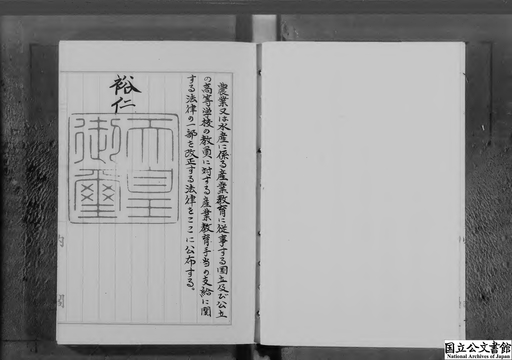 農業又は水産に係る産業教育に従事する国立及び公立
の高等学校の教員に対する産業教育手当の支給に関
する法律の一部を改正する法律をここに公布する。
裕仁
天皇
御璽
内閣
国立公文書館
National Archives of Japan